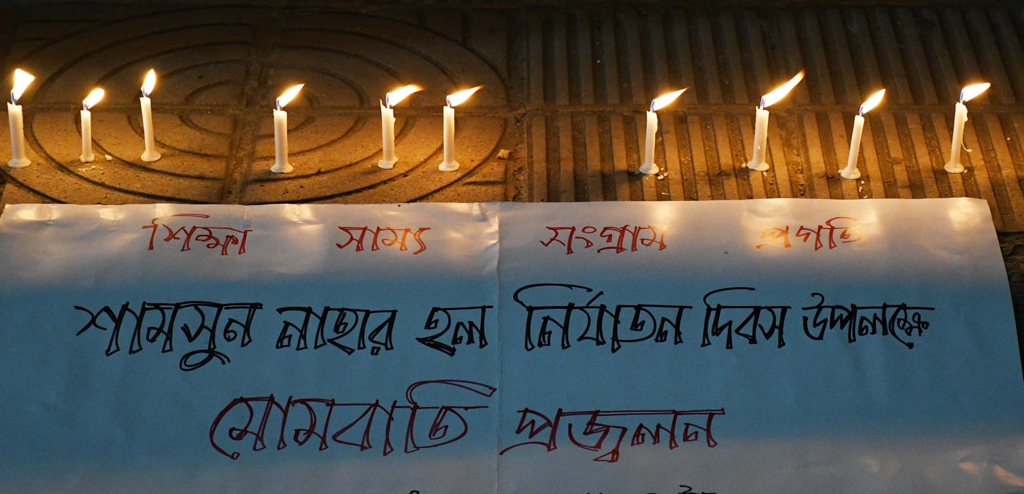 শিক্ষা সাম্য সংগ্রাম প্রগতি
শামসুন নাহার হল নির্যাতন দিবস উপলক্ষে
মোমবাতি প্রজ্বলন